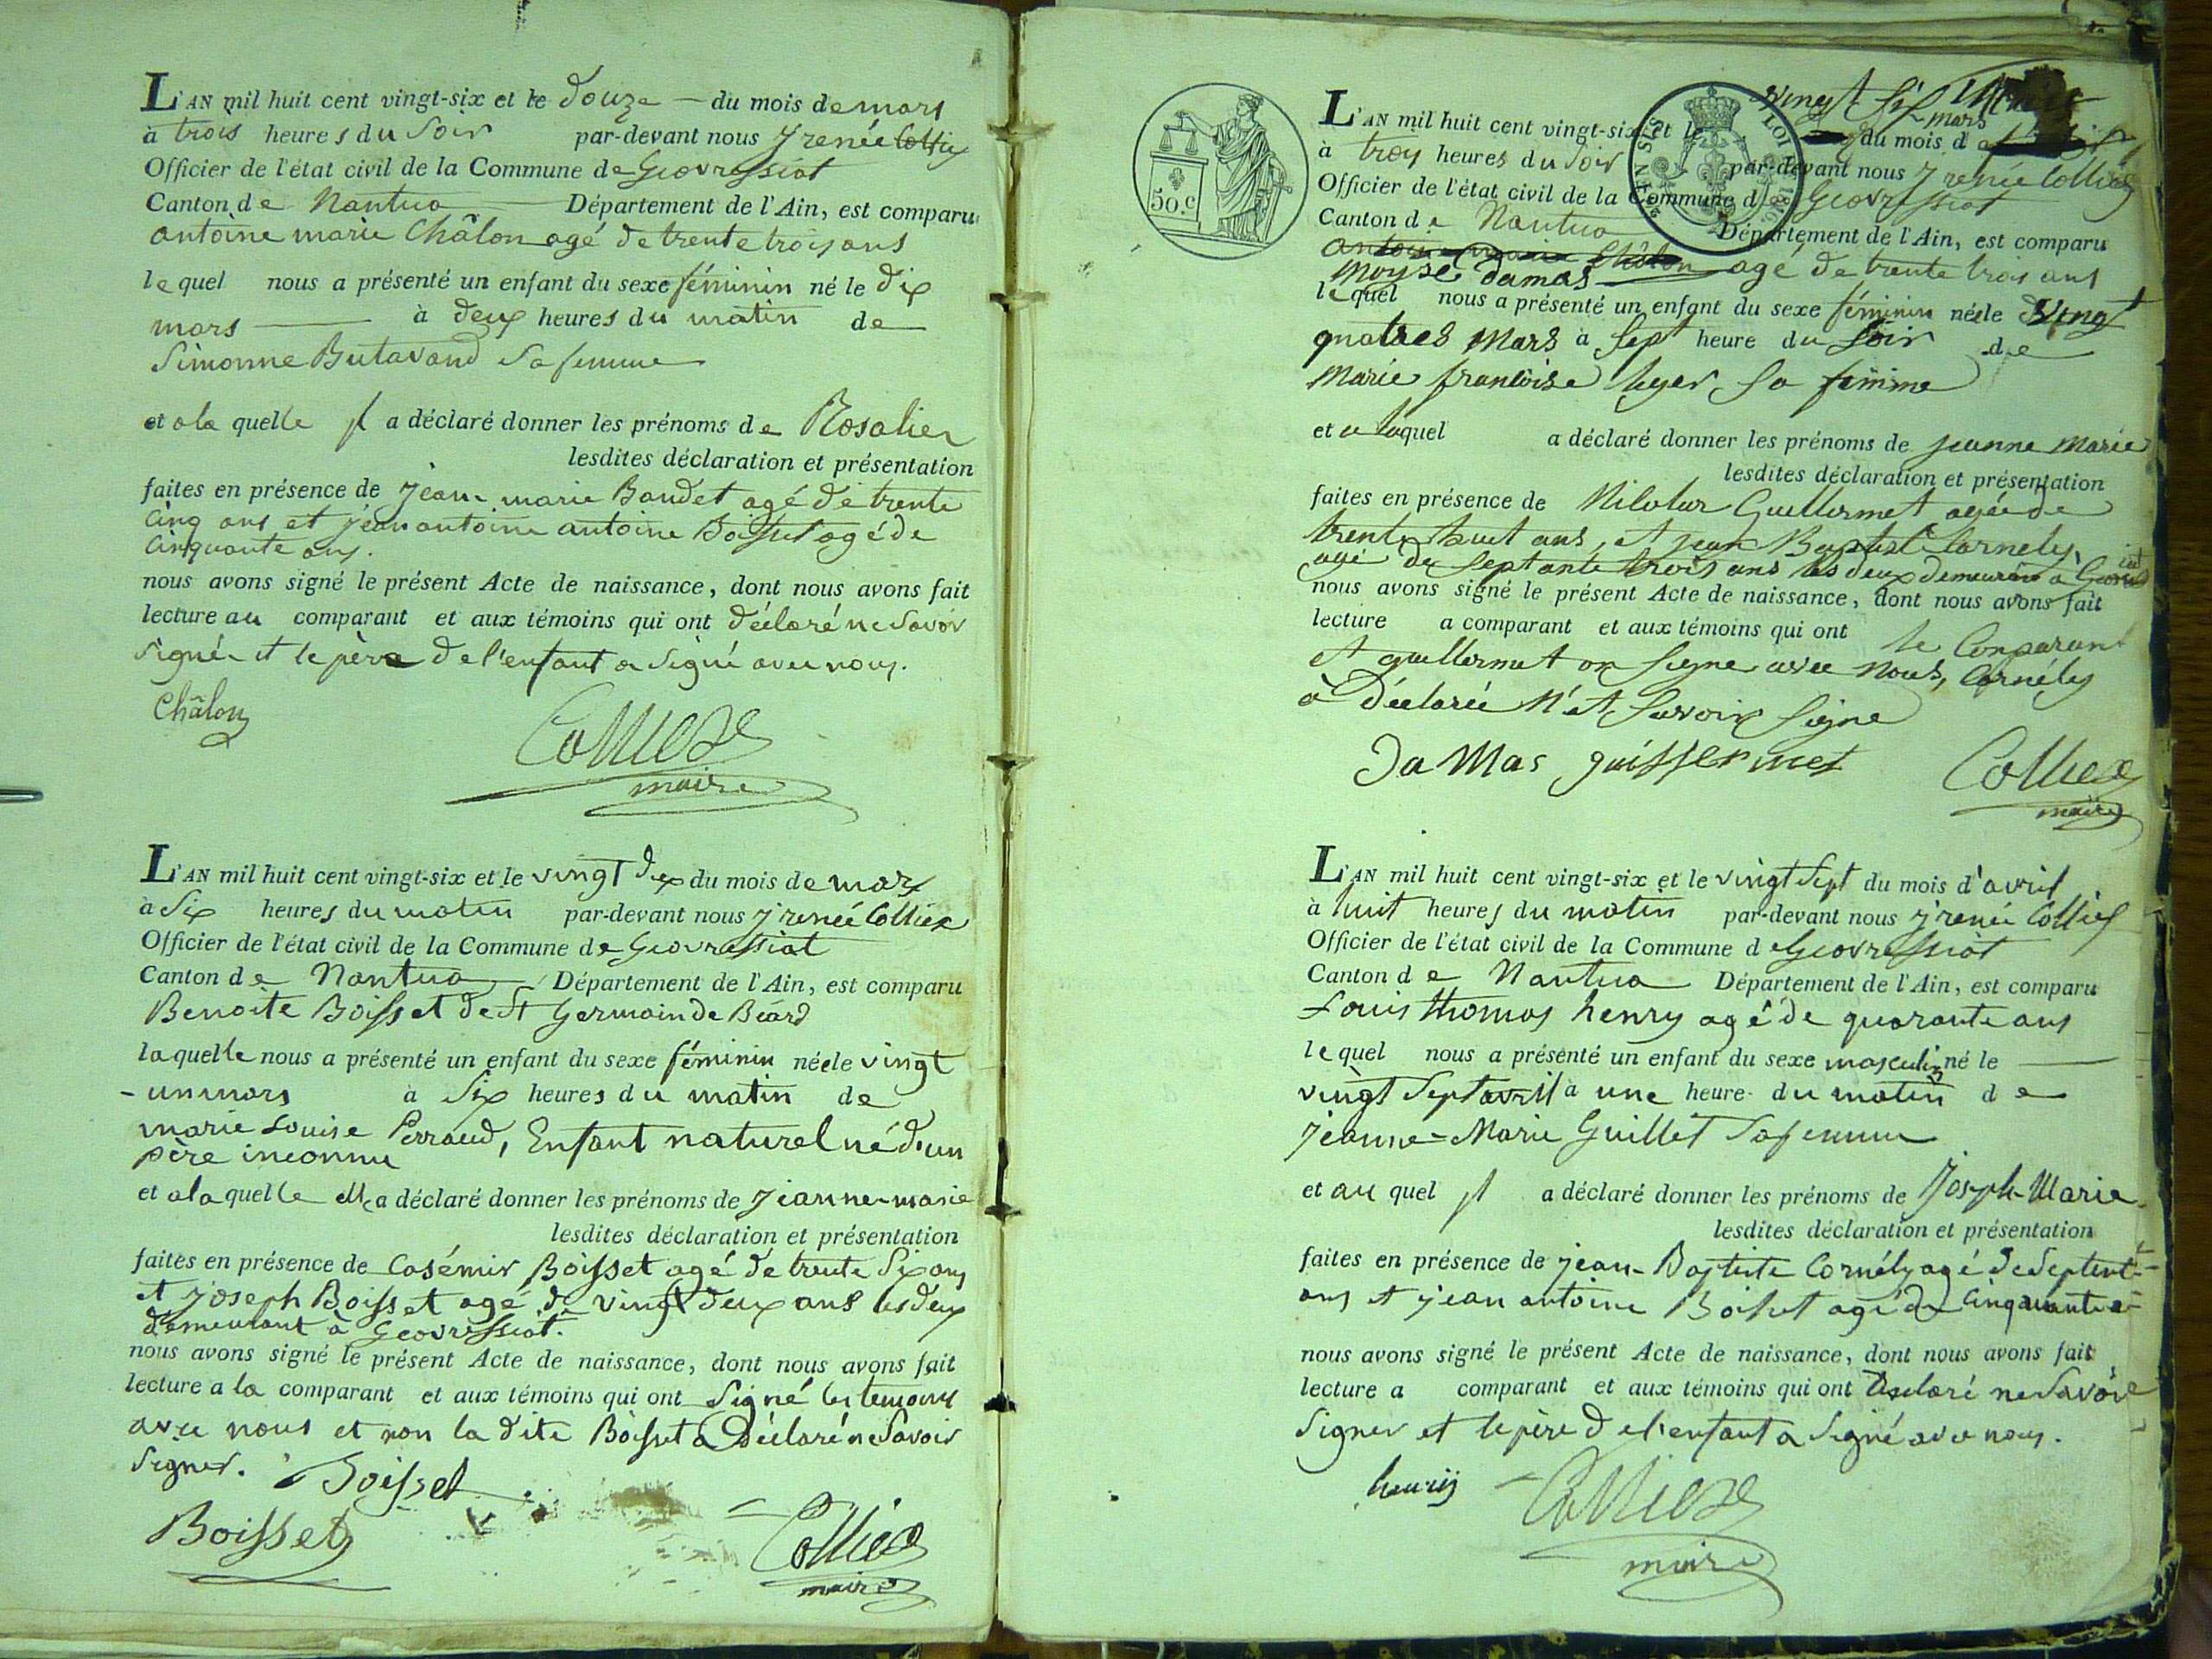 L'AN mil huit cent vingt-six et le douze du mois de mars
à trois heures du soir par-devant nous jrenée Colliex
Officier de l'état civil de la Commune de Geovressiat
Canton de Nantua Département de l'Ain, est comparu
antoine marie Châlon agé de trente troisans
lequel nous a présenté un enfant du sexe féminin né le dix
mars à deux heures du matin de
Simonne Butavand sa femme
et ala quelle il a déclaré donner les prénoms de Rosalie
lesdites déclaration et présentation
faites en présence de jean-marie Baudet agé de trente
cinq ans et jean antoine antoine Boisset agé de
cinquante ans.
nous avons signé le présent Acte de naissance, dont nous avons fait
lecture au comparant et aux témoins qui ont déclaré ne savoir
signé et le père de l'enfant a signé avec nous.
Châlon
Colliex
maire
L'AN mil huit cent vingt-six et le vingt deux du mois de mars
à six heures du matin par-devant nous jrenée Colliex
Officier de l'état civil de la Commune de Geovressiat
Canton de Nantua Département de l'Ain, est comparu
Benoite Boisset de St Germain de Béard
laquelle nous a présenté un enfant du sexe féminin née le vingt
-un mars à six heures du matin de
marie Louise Perraud, Enfant naturel né d'un
père inconnu
et ala quelle elle a déclaré donner les prénoms de jeanne-marie
lesdites déclaration et présentation
faites en présence de Casémir Boisset agé de trente six ans
et joseph Boisset agé de vingt deux ans les deux
demeurant à Geovressiat.
nous avons signé le présent Acte de naissance, dont nous avons fait
lecture a la comparant et aux témoins qui ont signé les temoins
avec nous et non la dite Boisset a déclaré ne savoir
signer. Boisset
Boisset
Colliex
maire
50.c
LOI 1816
vingt six
mars
L'AN mil huit cent vingt-six et le du mois d
à trois heures du soir par-devant nous jrenée Colliex
Officier de l'état civil de la Commune de Geovressiat
Canton de Nantua Département de l'Ain, est comparu
antoine marie Châlon agé de trente trois ans
moyse damas
lequel nous a présenté un enfant du sexe féminin née le vingt
quatres mars à sept heure du soir de
marie francoise leger sa femme
et a laquel a déclaré donner les prénoms de jeanne marie
lesdites déclaration et présentation
faites en présence de Guillermet agée de
trente huit ans, et jean Baptist Cornely,
agé de septante trois ans les deux demeurans à
nous avons signé le présent Acte de naissance, dont nous avons fait
lecture a comparant et aux témoins qui ont le Comparant
et guillermet on signe avec nous, Cornély
a déclarée n'et savoir signe
DaMas guillermet Colliex
maire
L'AN mil huit cent vingt-six et le vingt sept du mois d'avril
à huit heures du matin par-devant nous jrenée Colliex
Officier de l'état civil de la Commune de Geovressiat
Canton de Nantua Département de l'Ain, est comparu
Louis thomas henry agé de quarante ans
lequel nous a présenté un enfant du sexe masculin né le
vingt sept avril à une heure du matin de
jeanne-Marie Guillet sa femme
et au quel il a déclaré donner les prénoms de Joseph-Marie
lesdites déclaration et présentation
faites en présence de jean-Baptiste Cornély agé de septent-
ans et jean antoine Boisset agé de cinquante
nous avons signé le présent Acte de naissance, dont nous avons fait
lecture a comparant et aux témoins qui ont déclaré ne savoir
signer et le père de l'enfant a signé avec nous.
henrij
Colliex
maire